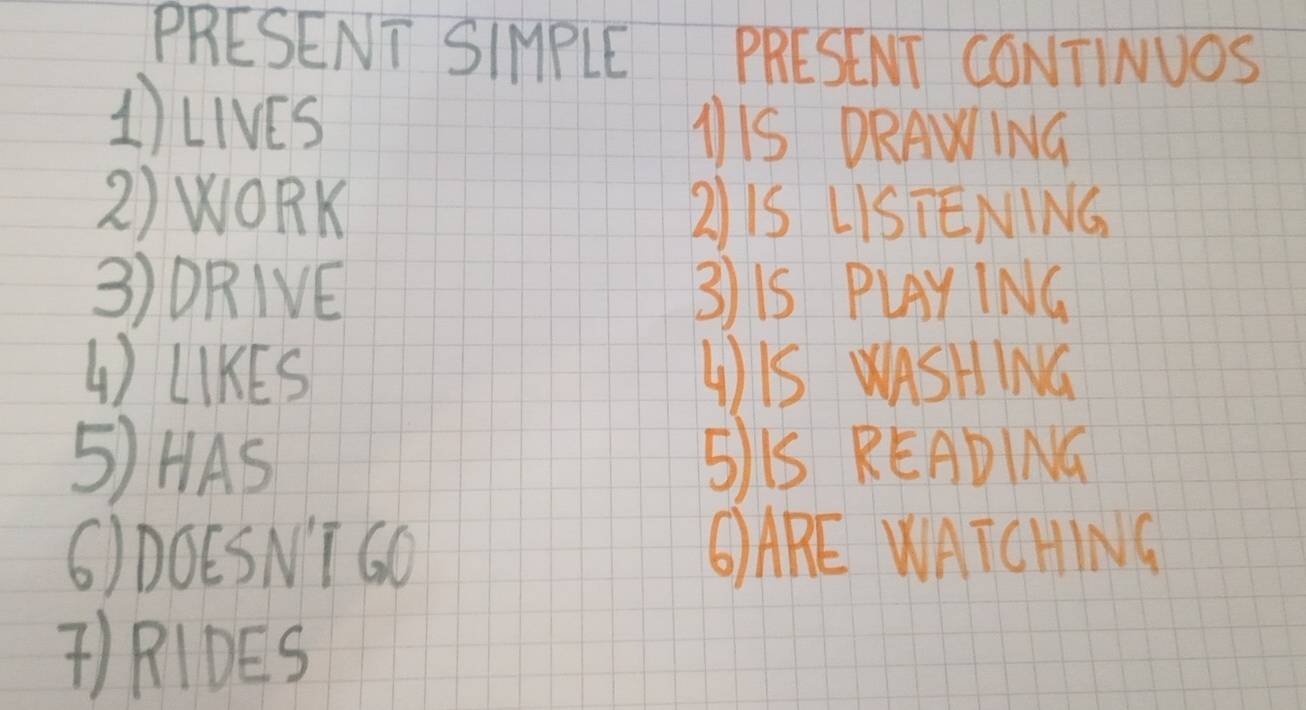 PRESENT SIMPLE
1) LIVES
2) WORK
3) DRIVE
4) LIKES
5) HAS
6) DOESN'T GO
7) RIDES
PRESENT CONTINUOS
1) IS DRAWING
2) IS LISTENING
3) IS PLAYING
4) IS WASHING
5) IS READING
6) ARE WATCHING